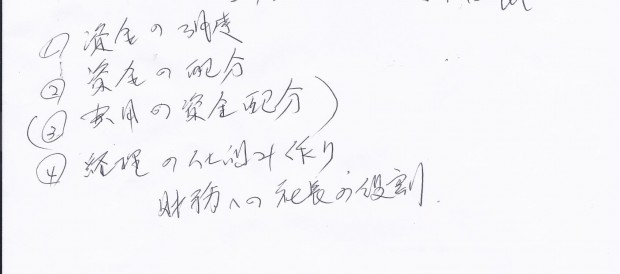 ① 資金の調達
② 資金の配分
(③ 費用の資金配分)
④ 経理の仕組み作り
財務への社長の役割